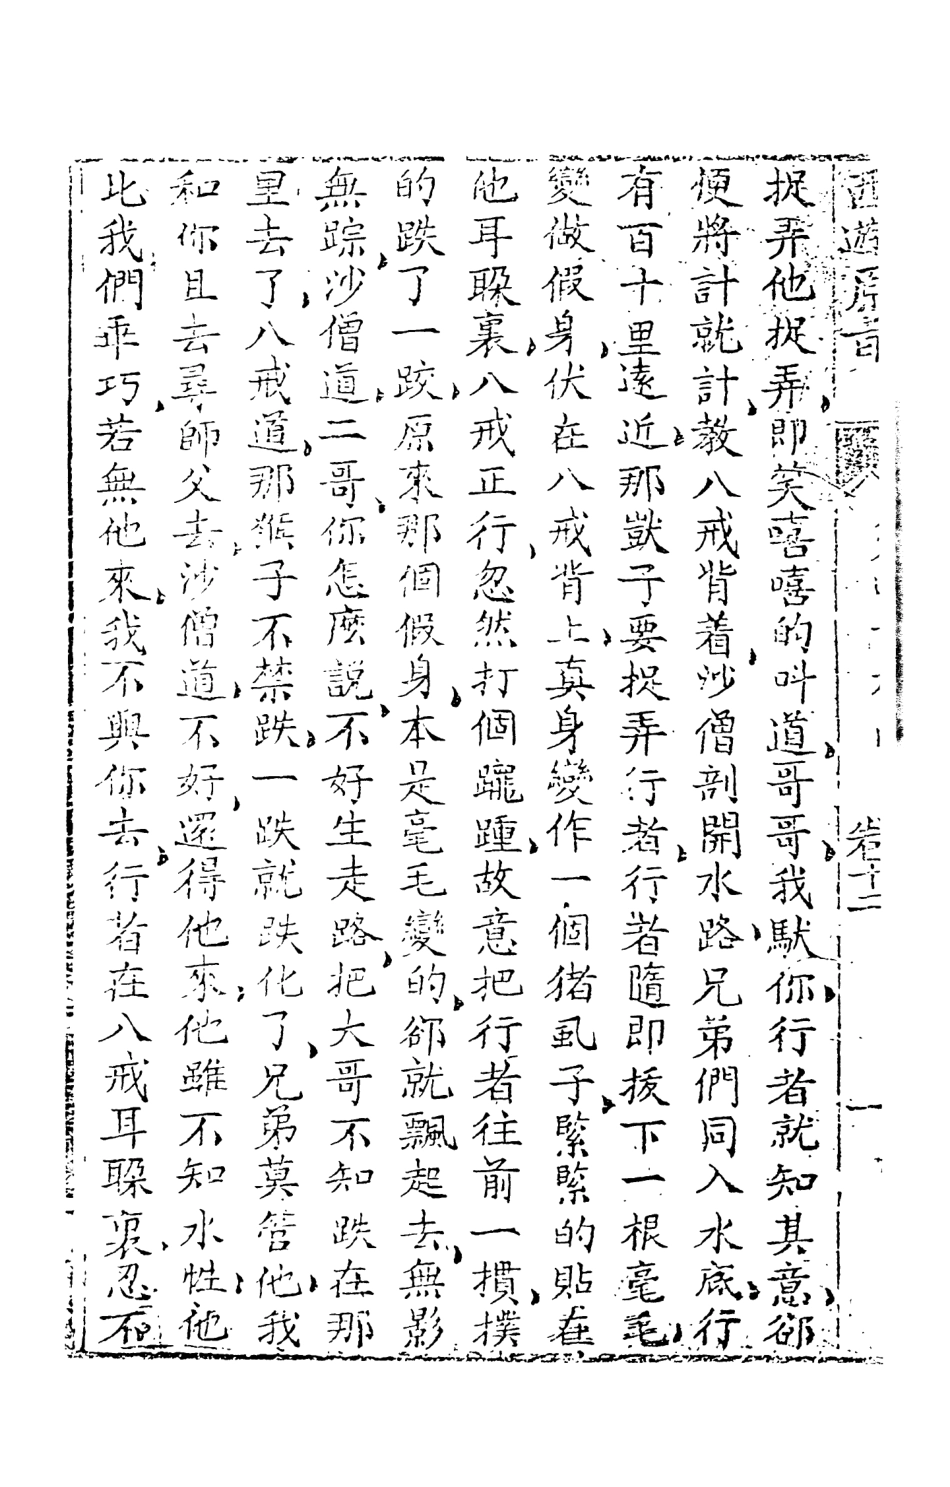 捉弄他捉弄、即笑嘻嘻的叫道、哥哥、我馱你、行者就知其意、郤
便將計就計、教八戒背着、沙僧剖開水路、兄弟們同入水底、行
有百十里遠近、那獃子要捉弄行者、行者隨即拔下一根毫毛、
變做假身、伏在八戒背上、真身變作一個猪虱子、緊緊的貼在
他耳躲裏、八戒正行、忽然打個躘踵、故意把行者往前一摜、撲
的跌了一跤、原來那個假身、本是毫毛變的、郤就飄起去、無影
無踪、沙僧道、二哥、你怎麽説、不好生走路、把大哥不知跌在那
里去了、八戒道、那猴子不禁跌、一跌就跌化了、兄弟莫管他、我
和你且去尋師父去、沙僧道、不好、還得他來、他雖不知水性、他
比我們乖巧、若無他來、我不與你去、行者在八戒耳躲裏、忍不
西遊原旨
卷十二
一